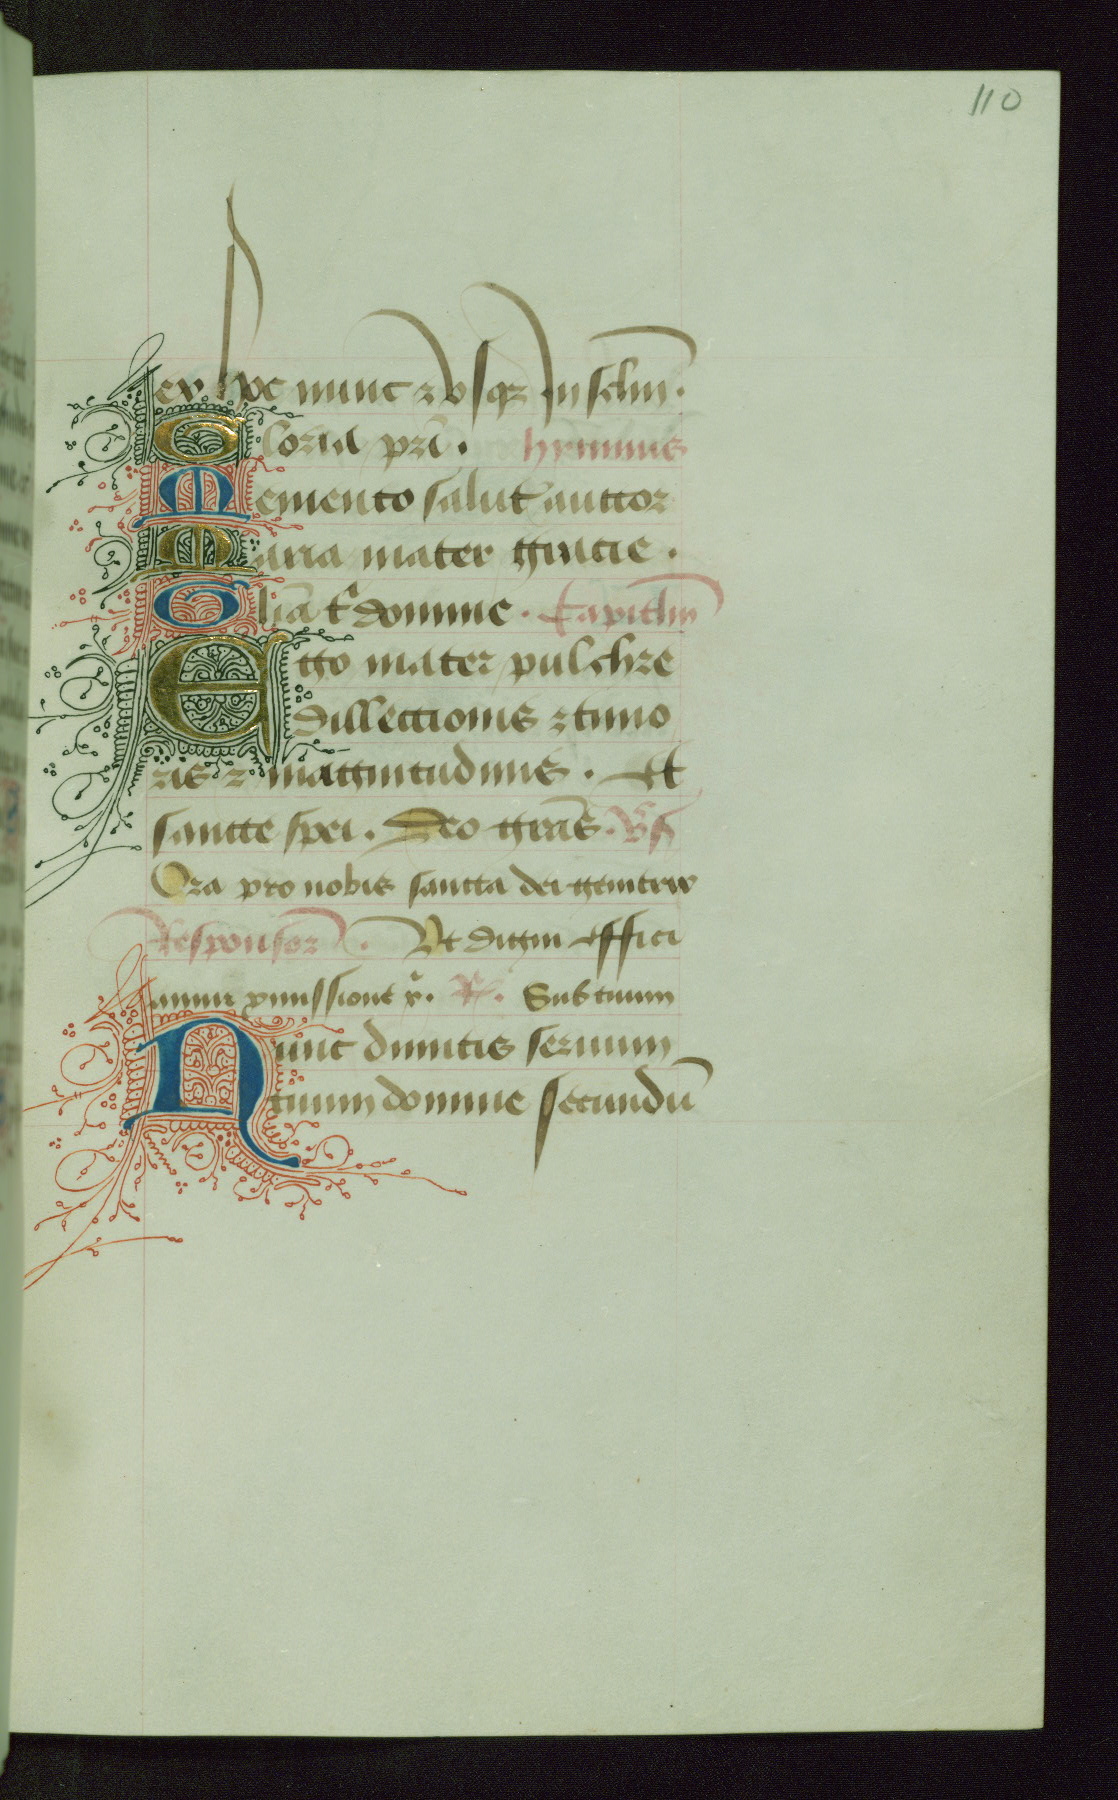 110
ex hoc nunc ⁊ vsqꝫ in sclm̄.
Gloria pr̄i. hympnus
Memento salut auctor
Maria mater gracie.
Glīa t domine. Capitlm̄
Ego mater pulchre
dillectionis ⁊ timo
ris ⁊ magnitudinis. Et
sancte spei. Deo grās. v̄s
Ora pro nobis sancta dei genitrix
Responsor. Vt digni effici
amur pmissiont x. R. Sub tuum
Nunc dimitis seruum
tuum domine secundū